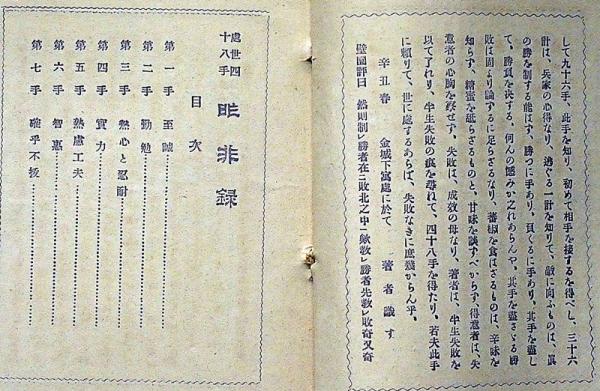 して九十六手、此手を知り、初めて相手を接するを得べし、三十六
計は、兵家の心得なり、逃ぐる一計を知りて、敵に向ふものは、眞
の勝を制する能はず、勝つに手あり、負くるに手あり、其手を盡し
て、勝負を決する、何んの憾みか之れあらんや、其手を盡さゞる勝
敗は固より論ずるに足らざるなり、蕃椒を食はざるものは、辛味を
知らず、糖蜜を舐らざるものと、甘味を談ずべからず、得意者は、失
意者の心胸を察せず、失敗は、成效の母なり、著者は、半生失敗を
以て了れり、半生失敗の痕を尋ねて、四十八手を得たり、若夫此手
に頼りて、世に處するあらば、失敗なきに庶幾からん乎。
辛丑春 金城下寓處に於て 著者識す
壁圖評曰 然則制レ勝者在二敗北之中一歟敎レ勝者先敎レ敗奇又奇
處世四十八手 昨非録
目次
第一手 至誠
第二手 勤勉
第三手 熱心と忍耐
第四手 實力
第五手 熟慮工夫
第六手 智惠
第七手 確乎不拔